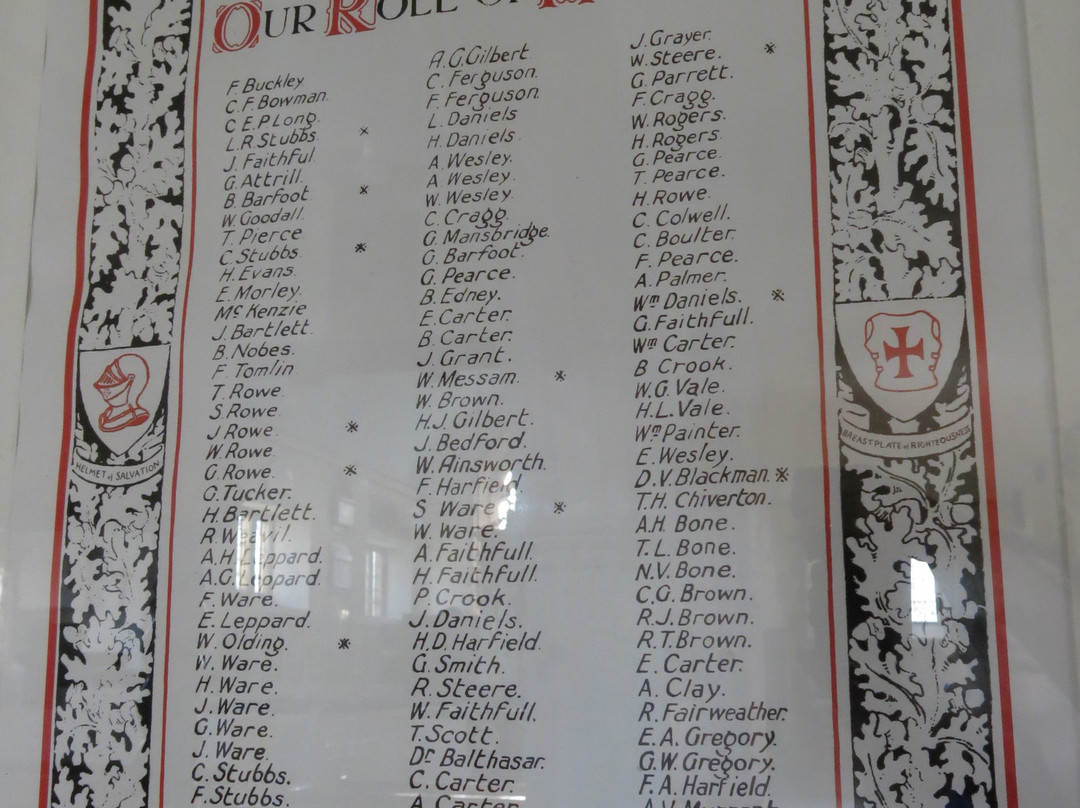 OUR ROLL OF
F. Buckley
C. F. Bowman.
C E. P. Long.
L.R. Stubbs ※
J. Faithful
G. Attrill.
B. Barfoot ※
W. Goodall.
T. Pierce
C. Stubbs ※
H. Evans.
E. Morley.
Mc Kenzie
J. Bartlett.
B. Nobes.
F. Tomlin
T. Rowe.
S. Rowe
J Rowe ※
W. Rowe
G. Rowe. ※
G. Tucker.
H. Bartlett.
R. Weavil.
A.H. Leppard.
A.G. Leppard.
F. Ware.
E. Leppard.
W. Olding. ※
W. Ware.
H. Ware.
J. Ware.
G. Ware.
J. Ware.
C. Stubbs.
F. Stubbs.
A. G. Gilbert
C. Ferguson.
F. Ferguson.
L. Daniels
H. Daniels.
A. Wesley.
A. Wesley.
W. Wesley.
C. Cragg.
G. Mansbridge.
G. Barfoot.
G. Pearce.
B. Edney.
E. Carter.
B. Carter.
J. Grant.
W. Messam. ※
W. Brown.
H.J. Gilbert.
J. Bedford.
W. Ainsworth.
F. Harfield
S Ware ※
W. Ware.
A. Faithfull.
H. Faithfull.
P. Crook.
J. Daniels.
H.D. Harfield.
G. Smith.
R. Steere.
W. Faithfull.
T. Scott.
Dr Balthasar.
C. Carter.
A. Carter
J. Grayer.
W. Steere. ※
G. Parrett.
F. Cragg.
W. Rogers.
H. Rogers.
G. Pearce.
T. Pearce.
H. Rowe.
C. Colwell.
C. Boulter.
F. Pearce.
A. Palmer.
Wm Daniels. ※
G. Faithfull.
Wm Carter.
B Crook.
W.G. Vale.
H.L. Vale.
Wm Painter.
E. Wesley.
D.V. Blackman. ※
T.H. Chiverton.
A.H. Bone.
T. L. Bone.
N.V. Bone.
C.G. Brown.
R.J. Brown.
R.T. Brown.
E. Carter.
A. Clay.
R. Fairweather.
E. A. Gregory.
G.W. Gregory.
F. A. Harfield.
HELMET of SALVATION
BREASTPLATE of RIGHTEOUSNESS